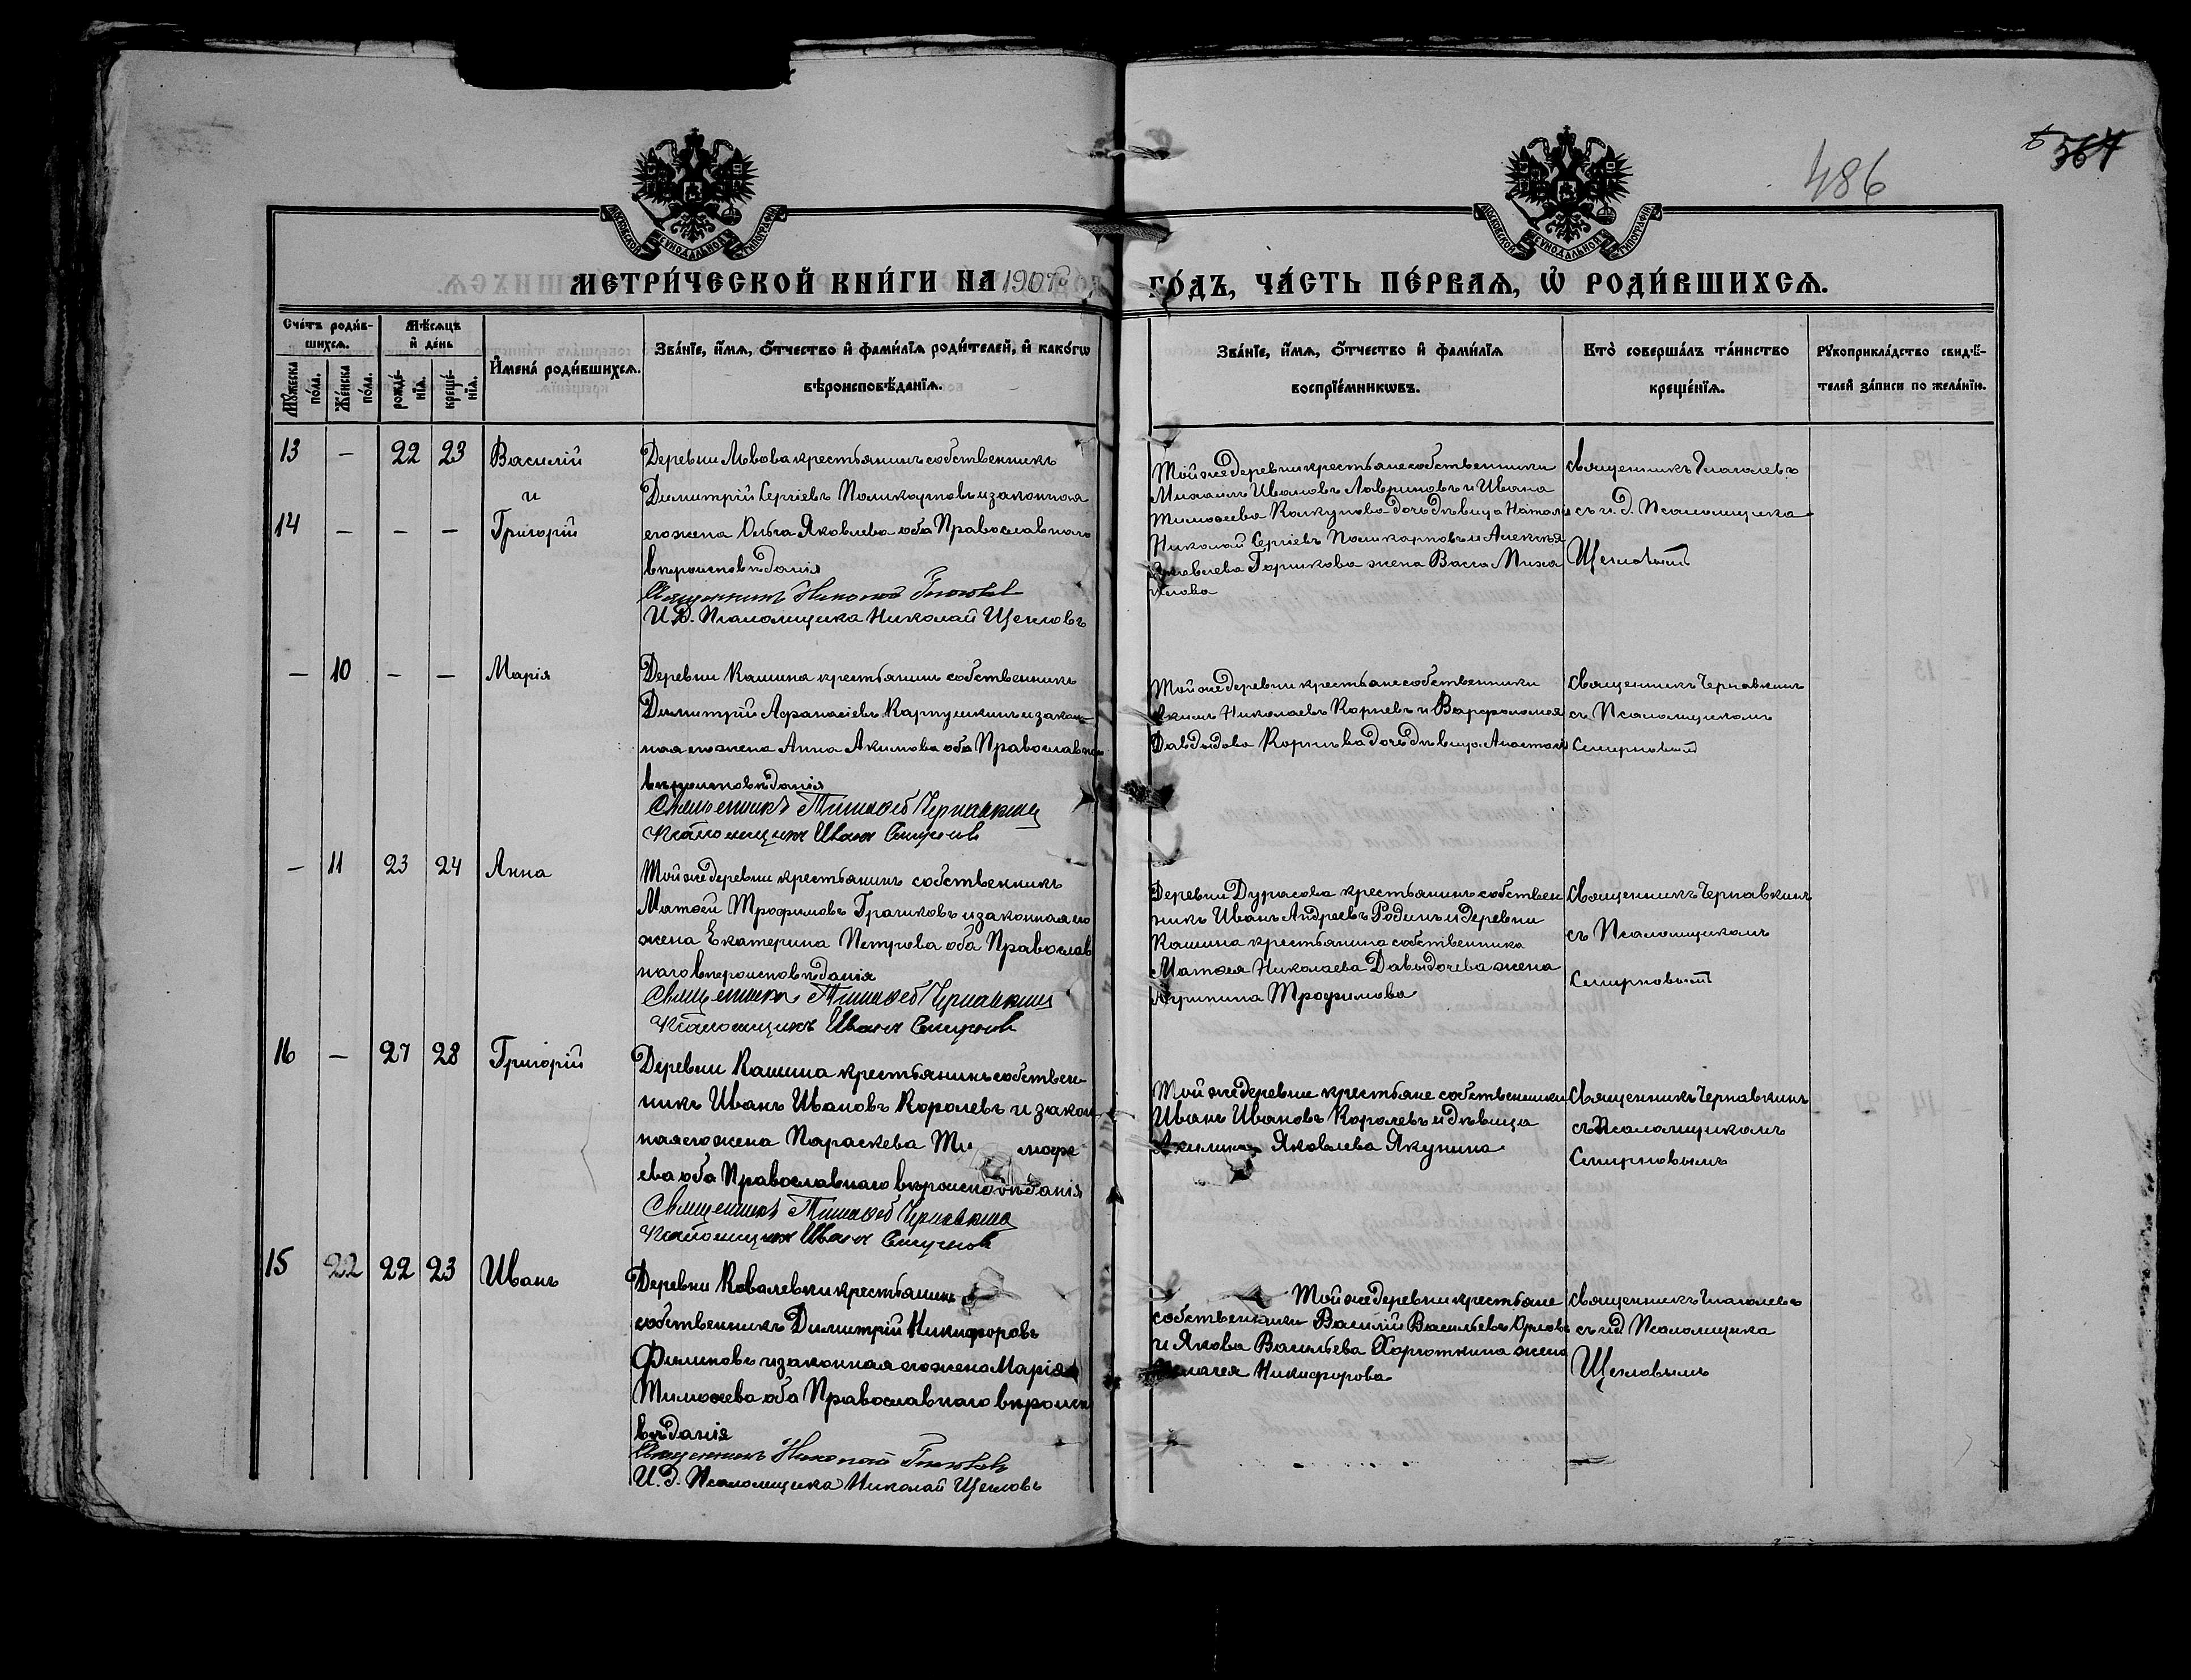 486
564
МОСКОВСКОЙ СѴНОДАЛЬНОЙ ТИПОГРАФІИ
МОСКОВСКОЙ СѴНОДАЛЬНОЙ ТИПОГРАФІИ
МЕТРИ́ЧЕСКОЙ КНИ́ГИ НА 1907
ГО́ДЪ, ЧА́СТЬ ПЕ́РВАѦ, Ѽ РОДИ́ВШИХСѦ.
Сче́тъ роди́в-
шихсѧ.
Мꙋжеска по́ла.
Же́нска по́ла.
Мѣ́сѧцъ
и҆ де́нь
рожде́-нїѧ.
креще́-нїѧ.
И҆мена̀ роди́вшихсѧ.
Зва́нїе, и҆́мѧ, ѻ҆́тчество и҆ фами́лїѧ роди́телей, и҆ како́гѡ
вѣроисповѣ́данїѧ.
Зва́нїе, и҆́мѧ, ѻ҆́тчество и҆ фами́лїѧ
воспрїе́мникѡвъ.
Кто̀ соверша́лъ та́инство
креще́нїѧ.
Рꙋкоприкла́дство свидѣ́-
телей за́писи по жела́нїю.
13 — 22 23 Василій
и
14 — — — Григорій
Деревни Львова крестьянинъ собственникъ
Димитрій Сергіевъ Поликарповъ и законная
его жена Ольга Яковлева оба Православнаго
вѣроисповѣданія
Священникъ Николай Глаголевъ
И. Д. Псаломщика Николай Щегловъ
Той же деревни крестьяне собственники
Михаилъ Ивановъ Лавриновъ и Ивана
Тимоѳеева Калкунова дочь дѣвица Наталія
Николай Сергіевъ Поликарповъ и Алексѣя
Горшкова жена Васса Миха
илова
Священникъ Глаголевъ
съ и. д. Псаломщика
Щегловымъ
— 10 — — Марія
Деревни Кашина крестьянинъ собственникъ
Димитрій Аѳанасіевъ Карпушкинъ и закон-
ная его жена Анна Акимова оба Православнаго
вѣроисповѣданія
Священникъ Тимоѳей Чернавкинъ
Псаломщикъ Иванъ Смирновъ
Той же деревни крестьяне собственники
Акимъ Николаевъ Корнѣевъ и Варфоломея
Давыдова дочь дѣвица
Священникъ Чернавкинъ
съ Псаломщикомъ
Смирновымъ
— 11 23 24 Анна
Той же деревни крестьянинъ собственникъ
Матѳей Трофимовъ Грачиковъ и законная его
жена Екатерина Петрова оба Православ
наго вѣроисповѣданія
Священникъ Тимоѳей Чернавкинъ
Псаломщикъ Иванъ Смирновъ
Деревни Дурасова крестьянинъ собствен
никъ Иванъ Андреевъ Родинъ и деревни
Кашина крестьянина собственника
Матѳея Николаева Давыдочева жена
Агрипина Трофимова
Священникъ Чернавкинъ
съ Псаломщикомъ
Смирновымъ
16 — 27 28 Григорій
Деревни Кашина крестьянинъ собствен-
никъ Иванъ Ивановъ Королевъ и закон
ная его жена Параскева Ти моѳе
ева оба Православнаго вѣроисповѣданія
Священникъ Тимоѳей Чернавкинъ
Псаломщикъ Иванъ Смирновъ
Той же деревни крестьяне собственники
Иванъ Ивановъ Королевъ и дѣвица
Акилина Яковлева Якунина
Священникъ Чернавкинъ
съ Псаломщикомъ
Смирновымъ
15 22 22 23 Иванъ
Деревни Ковалевки крестьянинъ
собственникъ Димитрій Никифоровъ
Филиновъ и законная его жена Марія
Тимоѳеева оба Православнаго вѣроиспо
вѣданія
Священникъ Николай Глаголевъ
И. Д. Псаломщика Николай Щегловъ
Той же деревни крестьяне
собственники Василій Васильевъ Орловъ
и Якова Васильева жена
Пелагея Никифорова
Священникъ Глаголевъ
съ и д Псаломщика
Щегловымъ